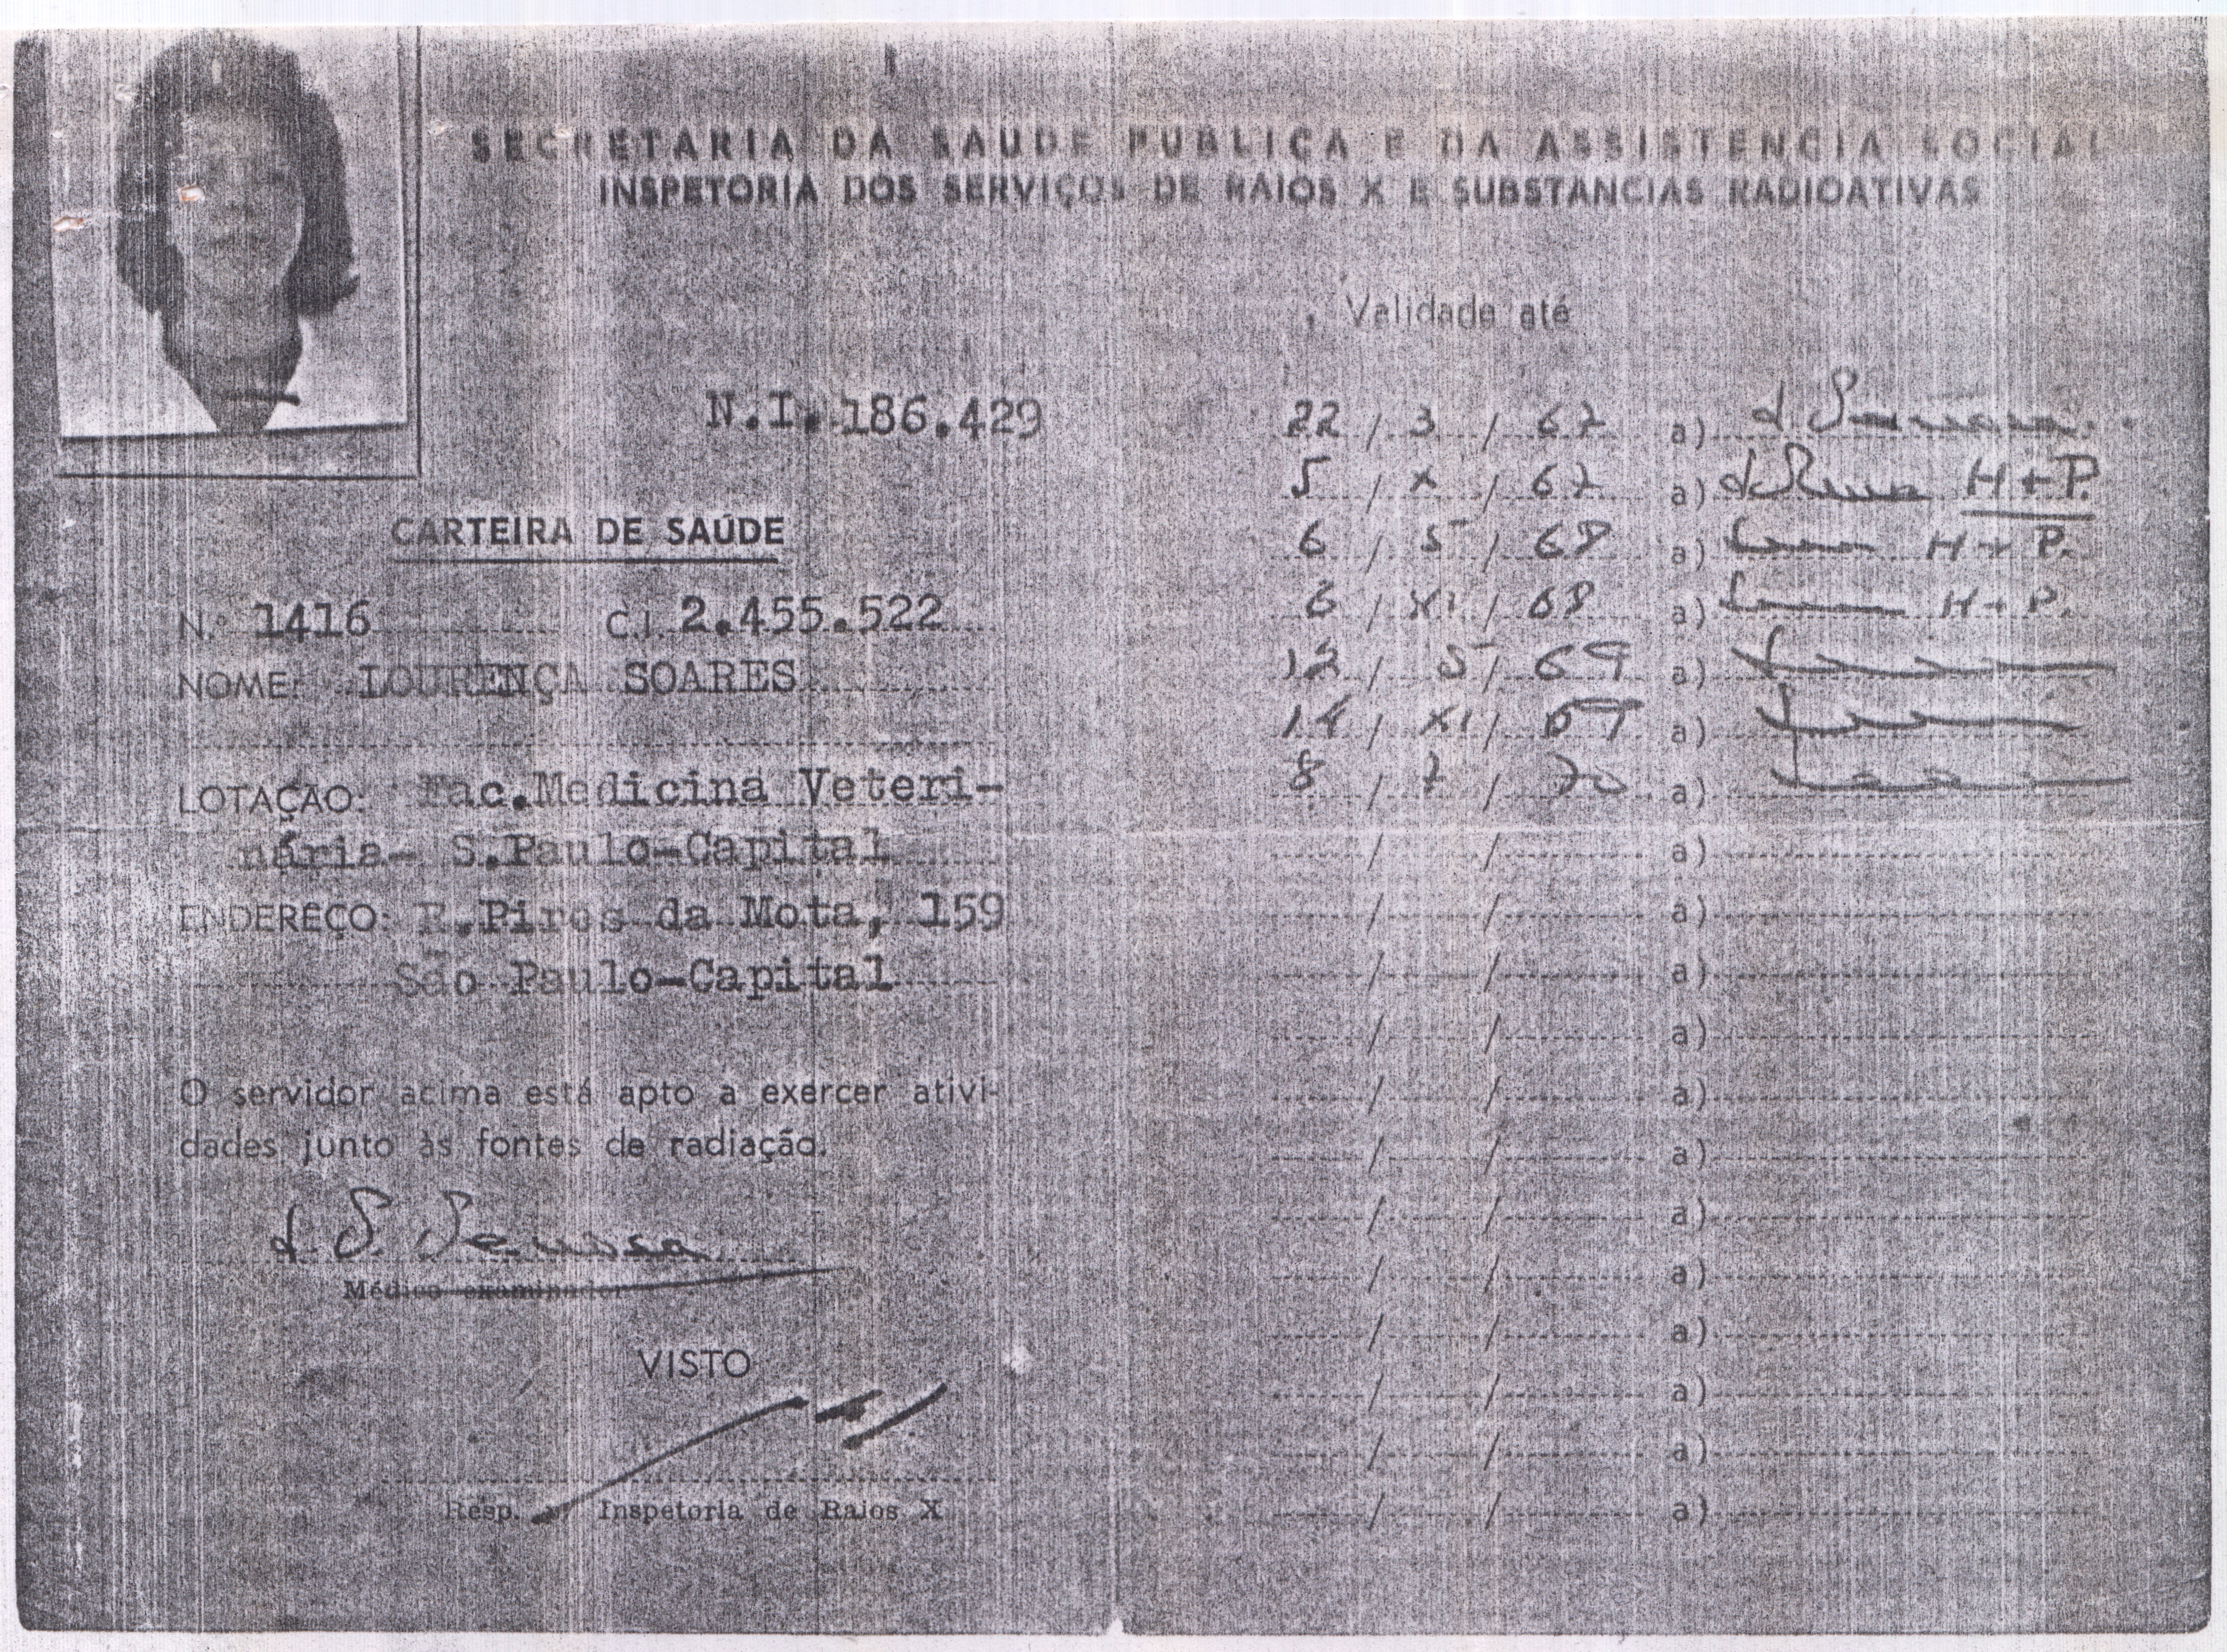 SECRETARIA DA SAUDE PUBLICA E DA ASSISTENCIA SOCIAL
INSPETORIA DOS SERVIÇOS DE RAIOS X E SUBSTANCIAS RADIOATIVAS
N.I. 186.429
CARTEIRA DE SAÚDE
N.º 1416 C.I. 2.455.522
NOME: LOURENÇA SOARES
LOTAÇÃO: Fac.Medicina Veteri-
nária- S.Paulo-Capital
ENDEREÇO: R.Pires da Mota, 159
São Paulo-Capital
O servidor acima está apto a exercer ativi-
dades junto às fontes de radiação.
Médico examinador
VISTO
Resp. Inspetoria de Raios X
Validade até
22 / 3 / 67 a)
5 / X / 67 a) H + P.
6 / 5 / 68 a) H + P.
6 / XI / 68 a) H + P.
12 / 5 / 69 a)
14 / XI / 69 a)
8 / 7 / 70 a)
/ / a)
/ / a)
/ / a)
/ / a)
/ / a)
/ / a)
/ / a)
/ / a)
/ / a)
/ / a)
/ / a)
/ / a)